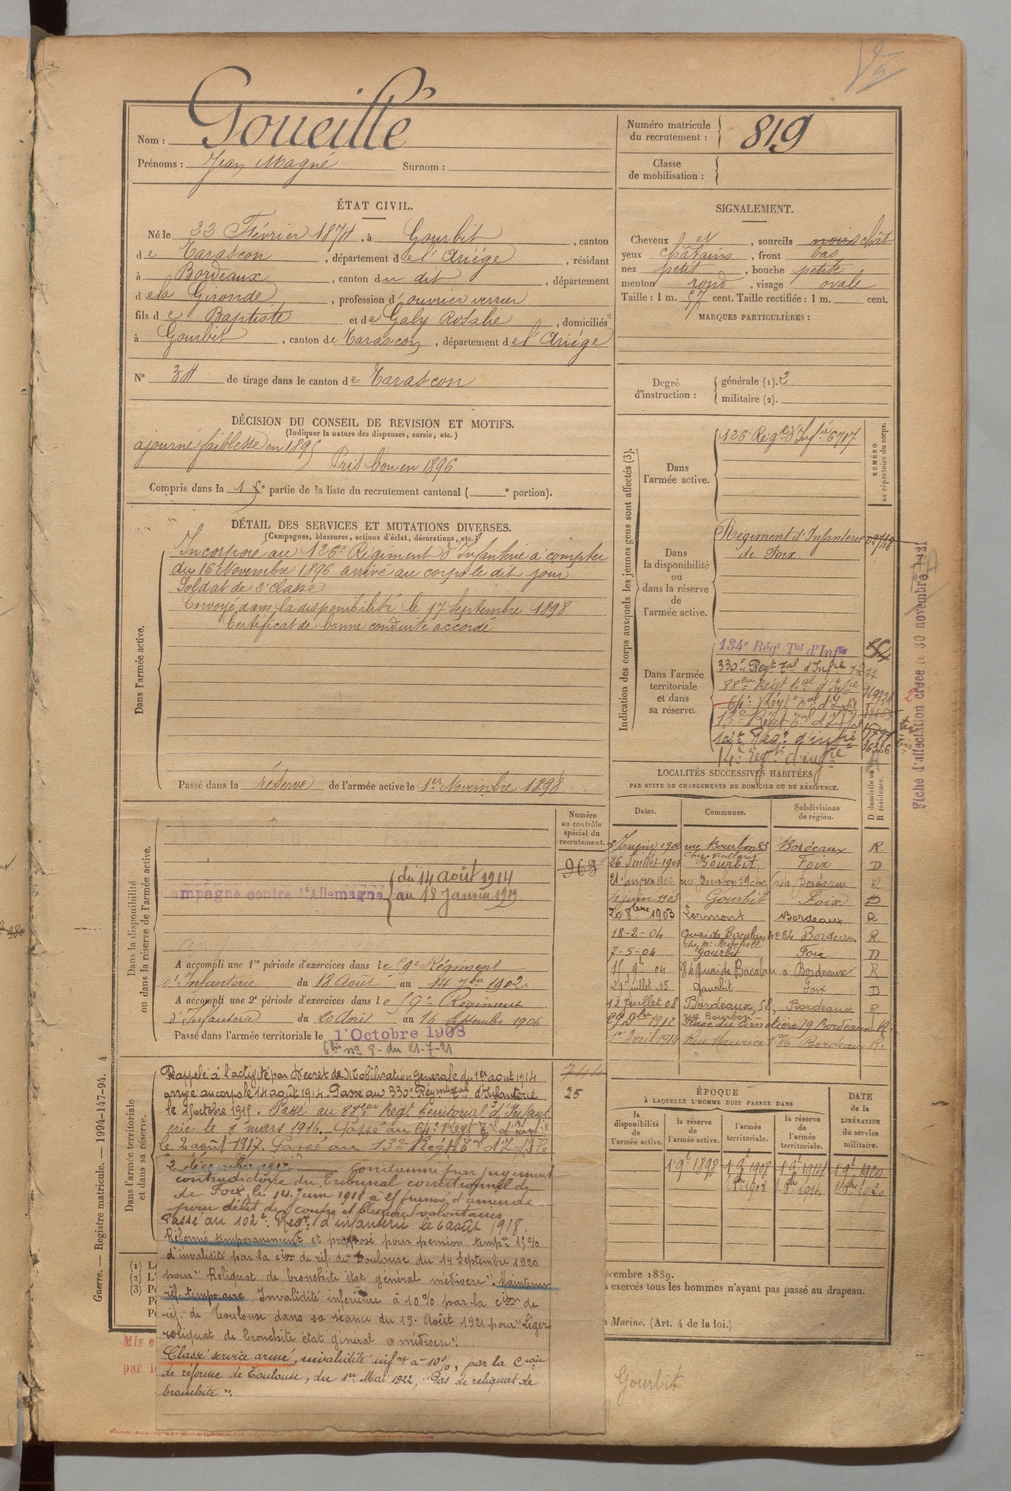 Nom : Goueillé
Prénoms : Jean Magné Surnom :
Numéro matricule du recrutement : 819
Classe de mobilisation :
ÉTAT CIVIL.
Né le 23 Février 1874, à Gourbit, canton
de Tarascon, département de l'Ariége, résidant
à Bordeaux, canton du dit, département
de la Gironde, profession d'ouvrier verrier
fils de Baptiste et de Gaby Rosalie, domiciliés
à Gourbit, canton de Tarascon, département de l'Ariége
N° 34 de tirage dans le canton de Tarascon
SIGNALEMENT.
Cheveux et, sourcils noirs chât
yeux châtains, front bas
nez petit, bouche petite
menton rond, visage ovale
Taille : 1 m. 57 cent. Taille rectifiée : 1 m. cent.
MARQUES PARTICULIÈRES :
Degré d'instruction : générale (1). 2
militaire (2).
DÉCISION DU CONSEIL DE REVISION ET MOTIFS.
(Indiquer la nature des dispenses, sursis, etc.)
ajourné faiblesse en 1895
Pris bon en 1896
Compris dans la 1re partie de la liste du recrutement cantonal ( e portion).
DÉTAIL DES SERVICES ET MUTATIONS DIVERSES.
(Campagnes, blessures, actions d'éclat, décorations, etc.)
Dans l'armée active.
Incorporé au 126e Régiment d'Infanterie à compter
du 16 Novembre 1896 arrivé au corps le dit jour
Soldat de 2e classe
Envoyé dans la disponibilité le 17 Septembre 1898
Certificat de bonne conduite accordé
Passé dans la réserve de l'armée active le 1er Novembre 1898
Indication des corps auxquels les jeunes gens sont affectés (3).
Dans l'armée active.
126e Régt d'Infie 6717
NUMÉRO au répertoire du corps.
Dans la disponibilité ou dans la réserve de l'armée active.
Régiment d'Infanterie
de Foix
Dans l'armée territoriale et dans sa réserve.
134e Régt Tal d'Infie
330e Régt Tal d'Infie
88eme Régt Tal d'Infie
64e Régt Tal d'Infie
13e Régt Tal d'Inf
102e Régt d'infie
14e Régt d'infie
Fiche d'affectation créée le 30 novembre 1921
LOCALITÉS SUCCESSIVES HABITÉES
PAR SUITE DE CHANGEMENTS DE DOMICILE OU DE RÉSIDENCE.
Dates. Communes. Subdivisions de région. D domicile ou R résidence.
Janvier 1900 rue Bourbon 85 Bordeaux R
26 Juillet 1901 Gourbit Foix D
21 Janvier 1902 rue Bourbon Bordeaux R
juin 1903 Gourbit Foix D
20 8bre 1903 Lormont Bordeaux R
18-2-04 Quai de Bacalan 84 Bordeaux R
7-5-04 Gourbit Foix D
15 9bre 04 84 Quai de Bacalan à Bordeaux R
juillet 05 Gourbit Foix D
12 Juillet 08 Bordeaux, 58, rue Bourbon Bordeaux R
1912 Bordeaux R
1er Avril 1914 rue Maurice Bordeaux R.
Dans la disponibilité ou dans la réserve de l'armée active.
Numéro au contrôle spécial du recrutement.
963
Campagne contre l'Allemagne du 14 août 1914
au 18 Janvier 1919
A accompli une 1re période d'exercices dans le 59e Régiment
d'Infanterie du 18 Août au 14 7bre 1902
A accompli une 2e période d'exercices dans le 59e Régiment
d'Infanterie du 20 Août au 16 Septembre 1906
Passé dans l'armée territoriale le 1 Octobre 1908
n° 8 - du 21-7-21
Dans l'armée territoriale et dans sa réserve.
744
25
Rappelé à l'activité par Décret de Mobilisation Générale du 1er aout 1914
arrivé au corps le 14 août 1914. Passé au 330e Régiment Tal d'Infanterie
le 25 octobre 1915. Passé au 88eme Régt territorial d'Infant
erie le 8 mars 1916. Passé au 64e Régt Tal d'Infie
le 2 août 1917. Passé au 13e Régt Tal d'I. le
2 décembre 1917. Condamné par jugement
contradictoire du Tribunal correctionnel de
de Foix le 14 Juin 1918 à 25 francs d'amende
pour délit de coups et blessures volontaires
Passé au 102e Régt d'infanterie le 6 août 1918.
Réformé temporairement et proposé pour pension tempre 15%
d'invalidité par la cion de réf. de Toulouse du 14 Septembre 1920
pour "Reliquat de bronchite état général médiocre". Maintenu
réf. temporaire, Invalidité inférieure à 10% par la cion de
réf. de Toulouse dans sa séance du 19 Août 1921 pour "Léger
reliquat de bronchite état général médiocre".
Classé service armé, invalidité infre à 10%, par la Cion
de réforme de Toulouse, du 1er Mai 1922, "Pas de reliquat de
bronchite".
ÉPOQUE
À LAQUELLE L'HOMME DOIT PASSER DANS
la disponibilité de l'armée active. la réserve de l'armée active. l'armée territoriale. la réserve de l'armée territoriale.
DATE de la LIBÉRATION du service militaire.
1 9bre 1898 1 9bre 1908 1 9bre 1914 1 9bre 1920
cembre 1889.
exercés tous les hommes n'ayant pas passé au drapeau.
Marine. (Art. 4 de la loi.)
Gourbit
(1)
(2)
(3)
Mis e
par l
Guerre. — Registre matricule. — 1994-147-94. 4